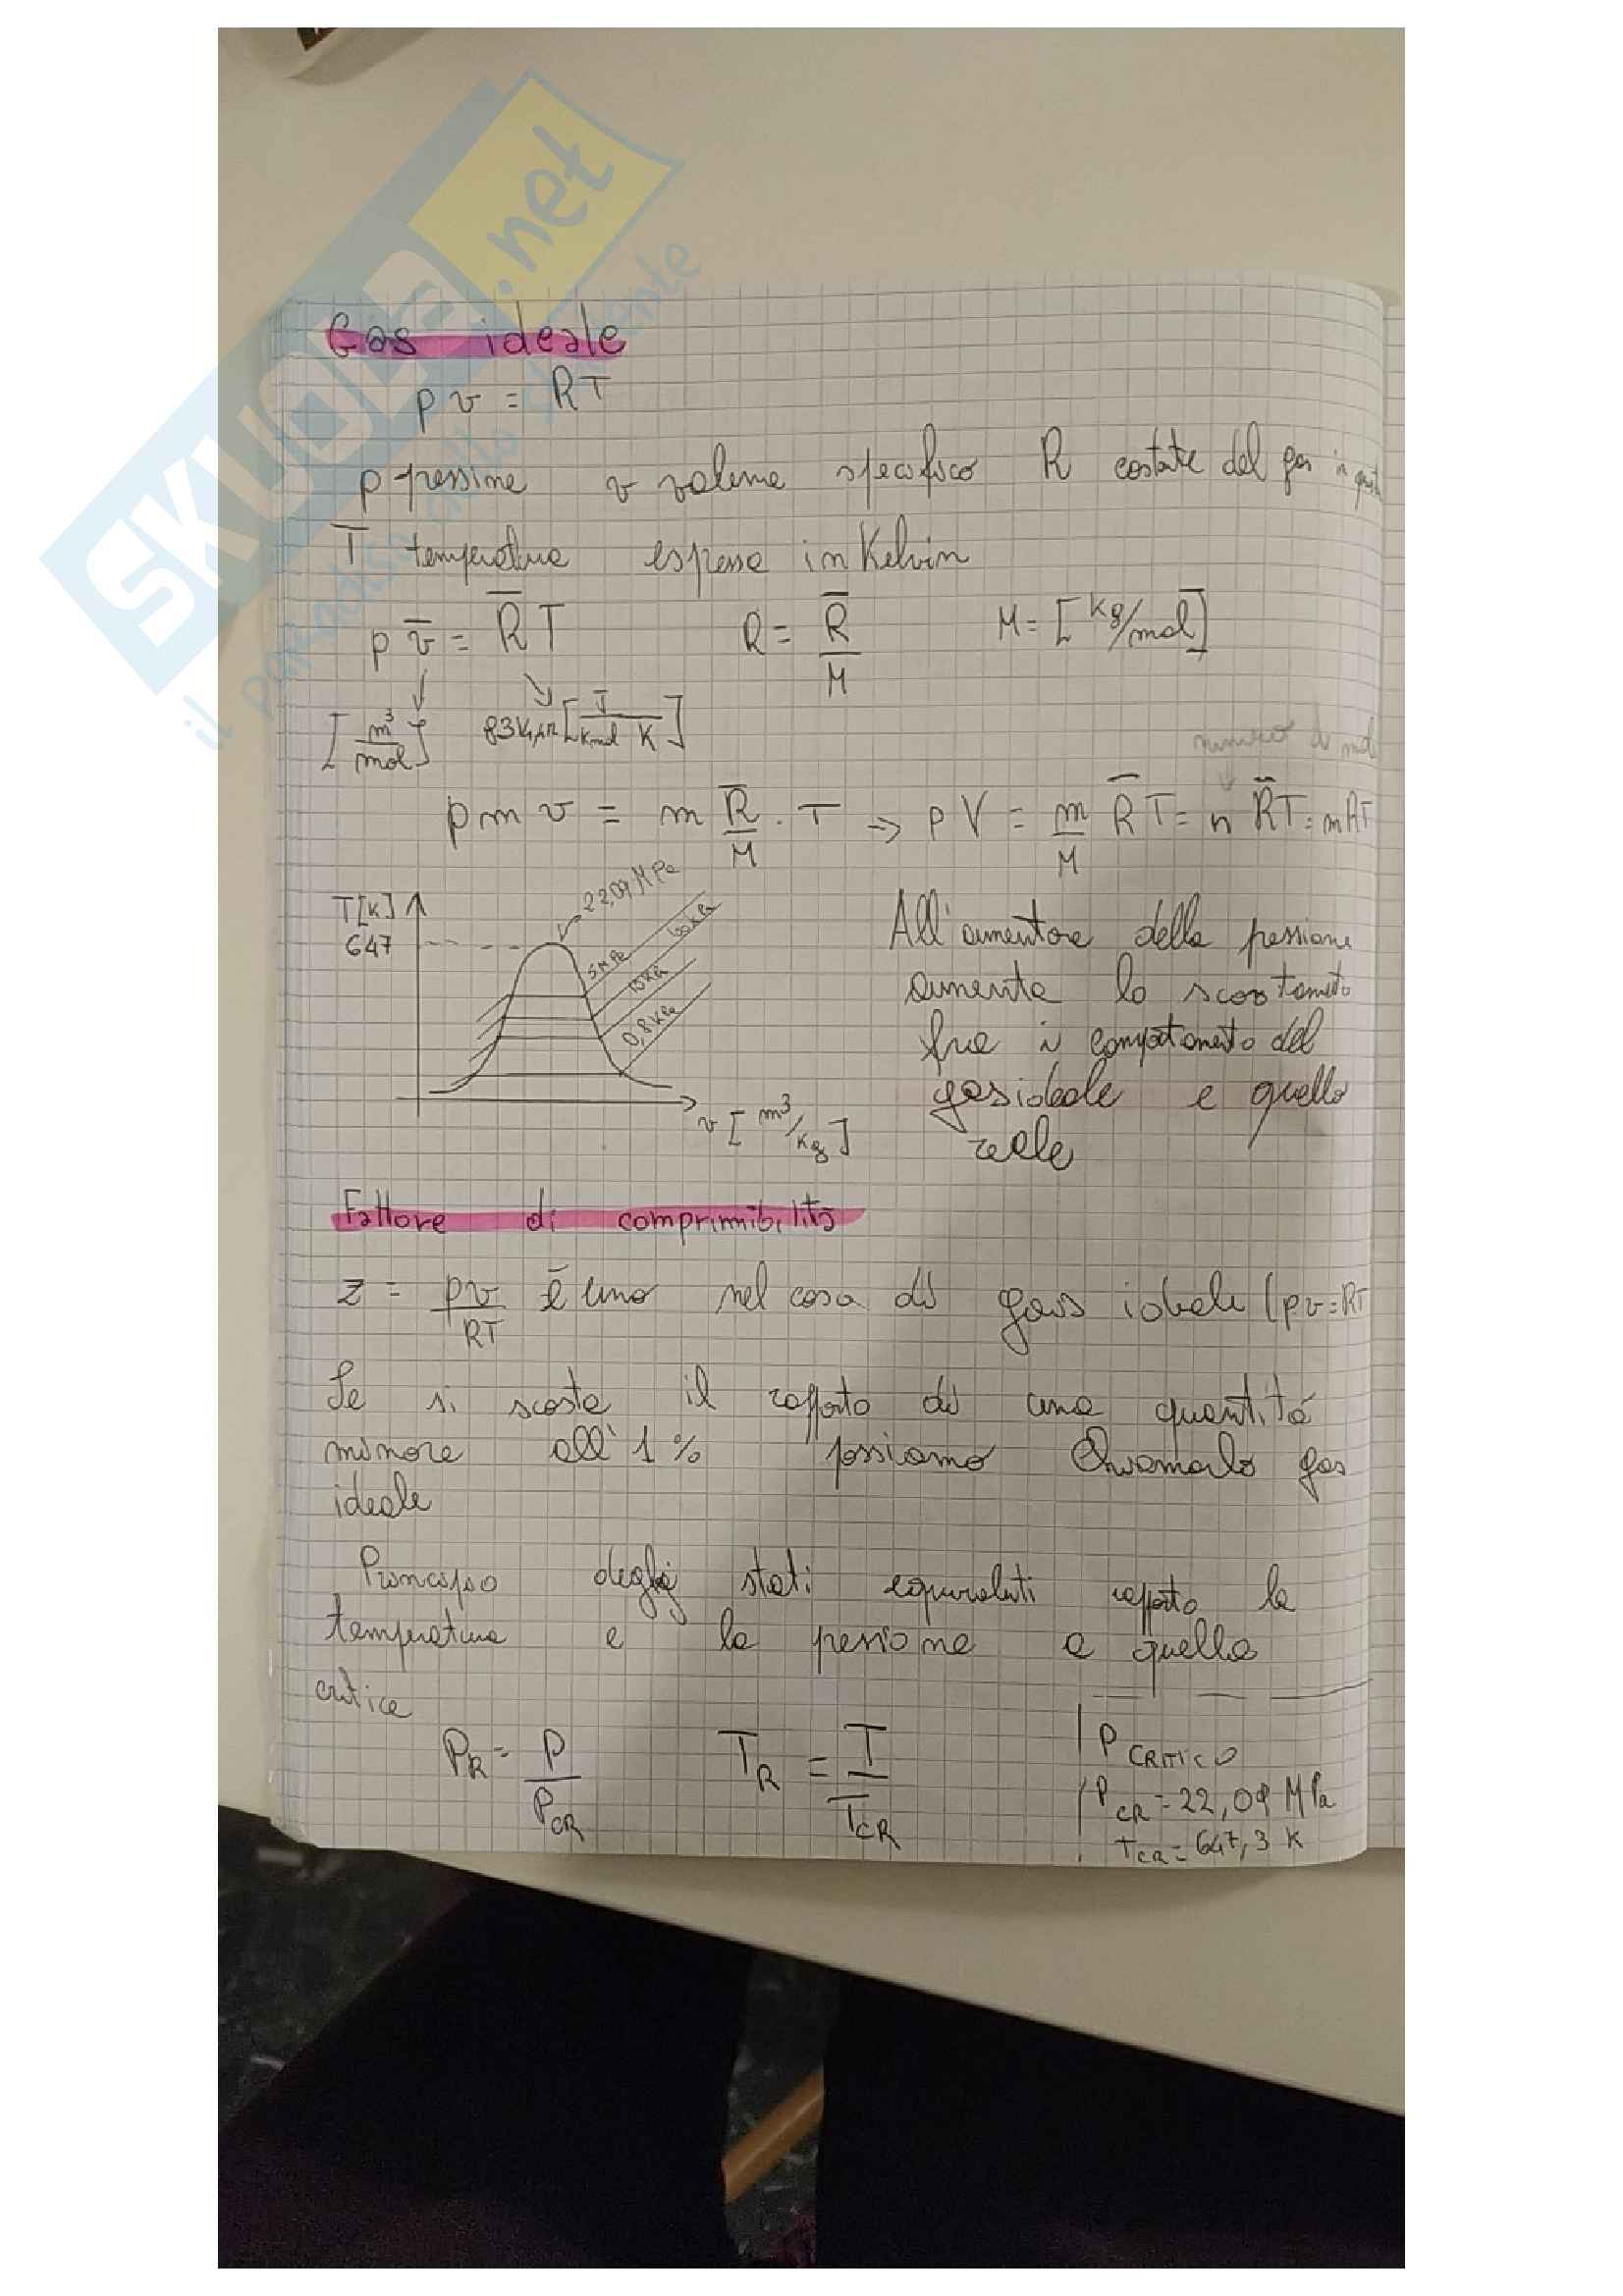 SKUOLA.net
il paradiso dello studente
Gas ideale
p v = RT
p pressine v volume specifico R costate del gas in
T temperatura espressa in Kelvin
p v̄ = R̄ T R = R̄/M M = [kg/mol]
[m³/mol] [J/kmol K]
numero di mol
p m v = m R̄/M · T → p V = m/M R̄ T = n R̄T = mRT
T[K]
647
22,09 MPa
5 MPa
100 kPa
10 kPa
0,8 kPa
v [m³/kg]
All'aumentare della pressione
aumenta lo scostamento
fra i comportamento del
gas ideale e quello
reale
Fattore di comprimibilità
z = pv/RT è uno nel caso di gas ideale (pv=RT
Se si scosta il rapporto di una quantità
minore all'1% possiamo chiamarlo gas
ideale
Principio degli stati equivaluti rapporto la
temperatura e la pressione a quella
critica
PR = P/PCR TR = T/TCR
P CRITICO
PCR = 22,09 MPa
TCR = 647,3 K